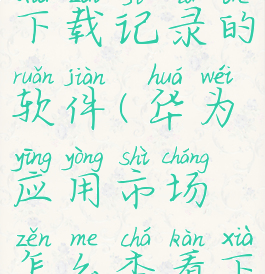 下载记录的
ruǎn jiàn huá wéi
软件(华为
yīng yòng shì chǎng
应用市场
zěn me chá kàn xià
怎么查看下